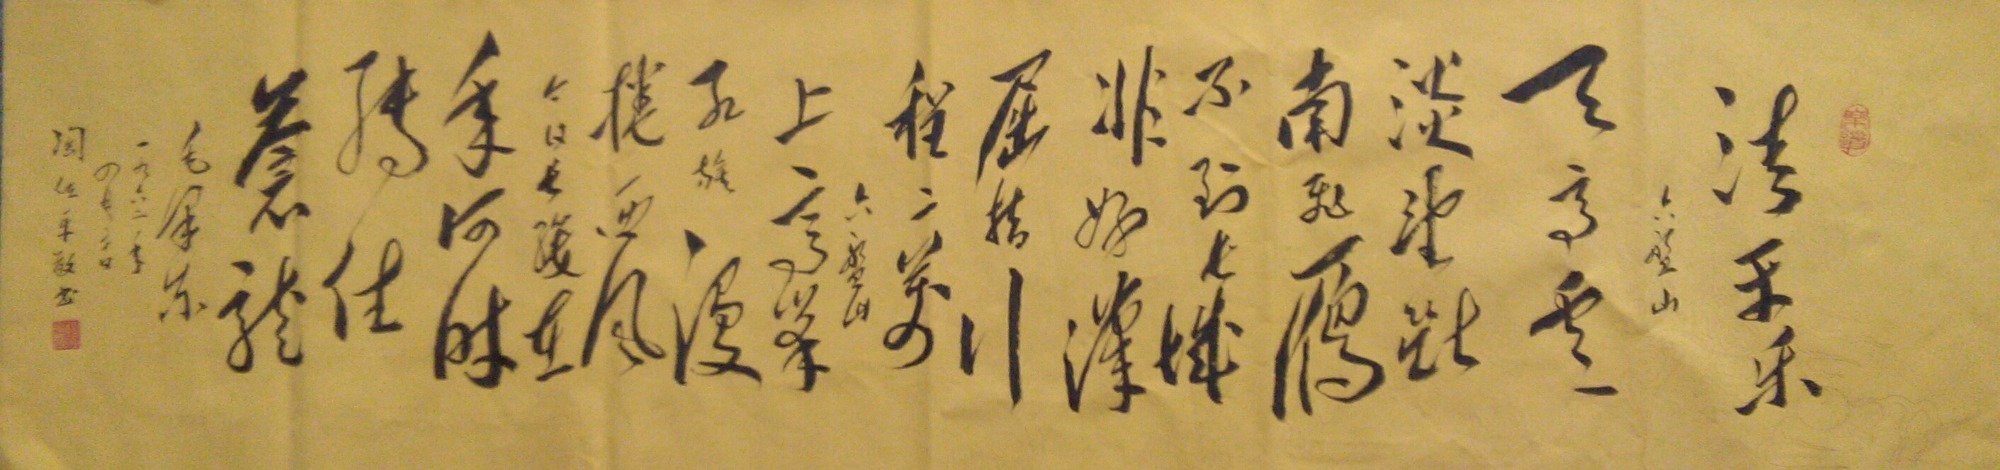 清平乐
六盘山
天高云
淡望断
南飞雁
不到长城
非好漢
屈指行
程二萬
六盘山
上高峰
红旗漫
捲西风
今日长缨在
手何时
缚住
苍龙
毛泽东
一九六二年
四月
敬书